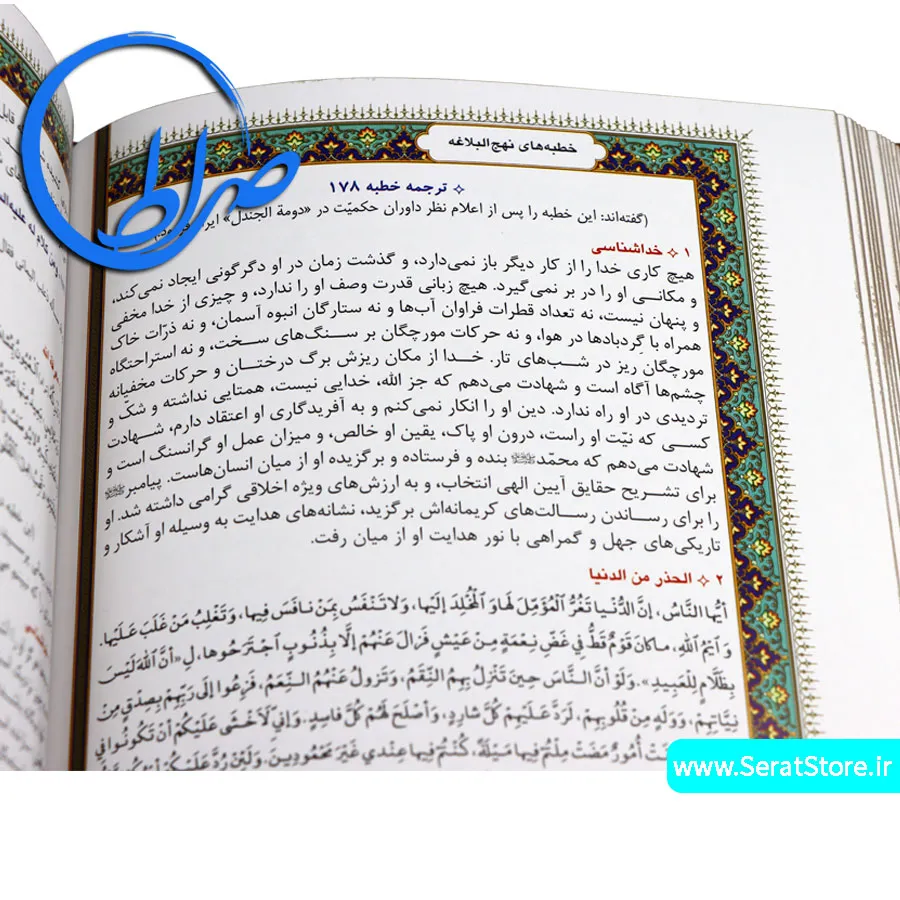 صراط
خطبه‌های نهج‌البلاغه
ترجمه خطبه ۱۷۸
(گفته‌اند: این خطبه را پس از اعلام نظر داوران حکمیّت در «دومة الجندل»
۱ خداشناسی
هیچ کاری خدا را از کار دیگر باز نمی‌دارد، و گذشت زمان در او دگرگونی ایجاد نمی‌کند،
و مکانی او را در بر نمی‌گیرد. هیچ زبانی قدرت وصف او را ندارد، و چیزی از خدا مخفی
و پنهان نیست، نه تعداد قطرات فراوان آب‌ها و نه ستارگان انبوه آسمان، و نه ذرّات خاک
همراه با گِردبادها در هوا، و نه حرکات مورچگان بر سنگ‌های سخت، و نه استراحتگاه
مورچگان ریز در شب‌های تار. خدا از مکان ریزش برگ درختان و حرکات مخفیانه
چشم‌ها آگاه است و شهادت می‌دهم که جز الله، خدایی نیست، همتایی نداشته و شکّ و
تردیدی در او راه ندارد. دین او را انکار نمی‌کنم و به آفریدگاری او اعتقاد دارم، شهادت
کسی که نیّت او راست، درون او پاک، یقین او خالص، و میزان عمل او گرانسنگ است و
شهادت می‌دهم که محمّد ﷺ بنده و فرستاده و برگزیده او از میان انسان‌هاست. پیامبر ﷺ
برای تشریح حقایق آیین الهی انتخاب، و به ارزش‌های ویژه اخلاقی گرامی داشته شد. او
را برای رساندن رسالت‌های کریمانه‌اش برگزید، نشانه‌های هدایت به وسیله او آشکار و
تاریکی‌های جهل و گمراهی با نور هدایت او از میان رفت.
۲ الحذر من الدنیا
أَیُّهَا النَّاسُ، إِنَّ الدُّنْیَا تَغُرُّ الْمُؤَمِّلَ لَهَا وَ الْمُخْلِدَ إِلَیْهَا، وَلَا تَنْفَسُ بِمَنْ نَافَسَ فِیهَا، وَتَغْلِبُ مَنْ غَلَبَ عَلَیْهَا.
وَ ایْمُ اللهِ، مَا کَانَ قَوْمٌ قَطُّ فِی غَضِّ نِعْمَةٍ مِنْ عَیْشٍ فَزَالَ عَنْهُمْ إِلَّا بِذُنُوبٍ اجْتَرَحُوهَا، لِـ «أَنَّ اللهَ لَیْسَ
بِظَلَّامٍ لِلْعَبِیدِ». وَلَوْ أَنَّ النَّاسَ حِینَ تَنْزِلُ بِهِمُ النِّقَمُ، وَ تَزُولُ عَنْهُمُ النِّعَمُ، فَزِعُوا إِلَی رَبِّهِمْ بِصِدْقٍ مِنْ
نِیَّاتِهِمْ، وَوَلَهٍ مِنْ قُلُوبِهِمْ، لَرَدَّ عَلَیْهِمْ کُلَّ شَارِدٍ، وَأَصْلَحَ لَهُمْ کُلَّ فَاسِدٍ. وَإِنِّی لَأَخْشَی عَلَیْکُمْ أَنْ تَکُونُوا فِی
أُمُورٌ مَضَتْ مِلْتُمْ فِیهَا مَیْلَةً، کُنْتُمْ فِیهَا عِنْدِی غَیْرَ مَحْمُودِینَ. وَلَئِنْ رُدَّ عَلَیْکُمْ
www.SeratStore.ir